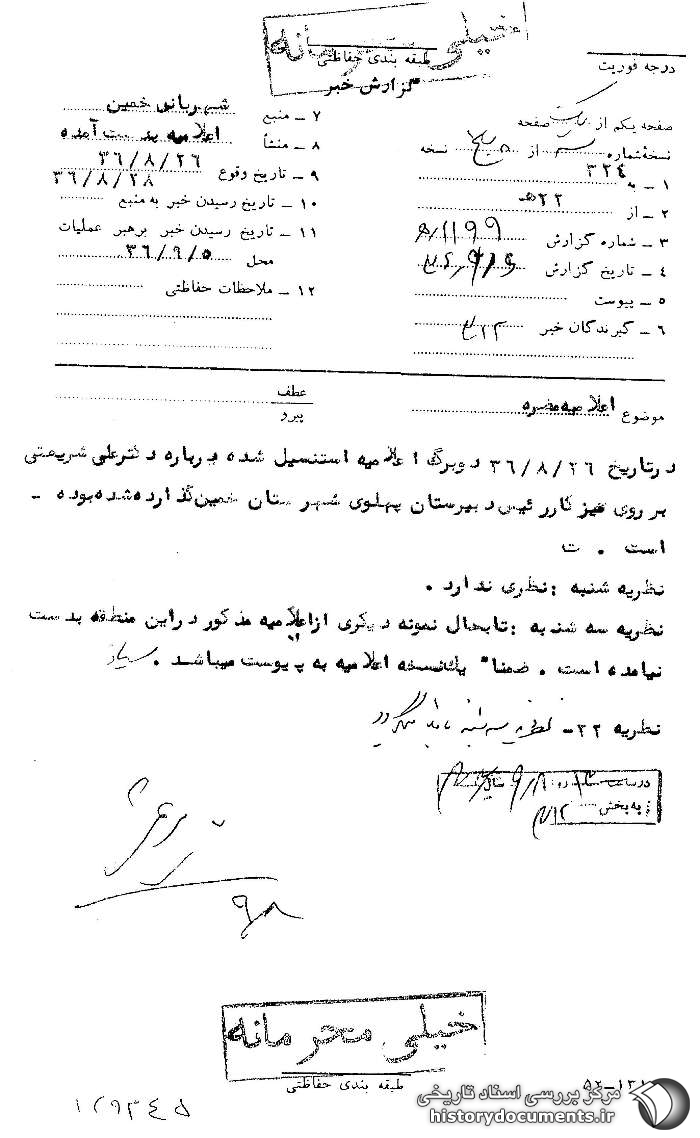 خیلی محرمانه
طبقه بندی حفاظتی
گزارش خبر
درجه فوریت
صفحه یکم از یک صفحه
نسخهٔ شماره از نسخه
۱ - به ۳۲۴
۲ - از ۲۲ه‍
۳ - شماره گزارش ۱۱۹۹/ه‍
۴ - تاریخ گزارش
۵ - پیوست
۶ - گیرندگان خبر
۷ - منبع شهربانی خمین
۸ - منشأ اعلامیه بدست آمده
۹ - تاریخ وقوع ۳۶/۸/۲۶
۳۶/۸/۲۸
۱۰ - تاریخ رسیدن خبر به منبع
۱۱ - تاریخ رسیدن خبر برهبر عملیات
محل ۳۶/۹/۵
۱۲ - ملاحظات حفاظتی
موضوع اعلامیه مضره
عطف
پیرو
در تاریخ ۳۶/۸/۲۶ دوبرگ اعلامیه استنسیل شده درباره دکتر علی شریعتی
بر روی میز کار رئیس دبیرستان پهلوی شهرستان خمین گذارده شده بوده -
است . ت
نظریه شنبه : نظری ندارد .
نظریه سه شنبه : تابحال نمونه دیگری از اعلامیه مذکور در این منطقه بدست
نیامده است . ضمنا" یکنسخه اعلامیه به پیوست میباشد .
نظریه ۲۲- نظریه سه شنبه تائید میگردد
به بخش ۳۱۲
۹/۸
خیلی محرمانه
طبقه بندی حفاظتی
۱۲۹۳۴۵
مرکز بررسی اسناد تاریخی
historydocuments.ir